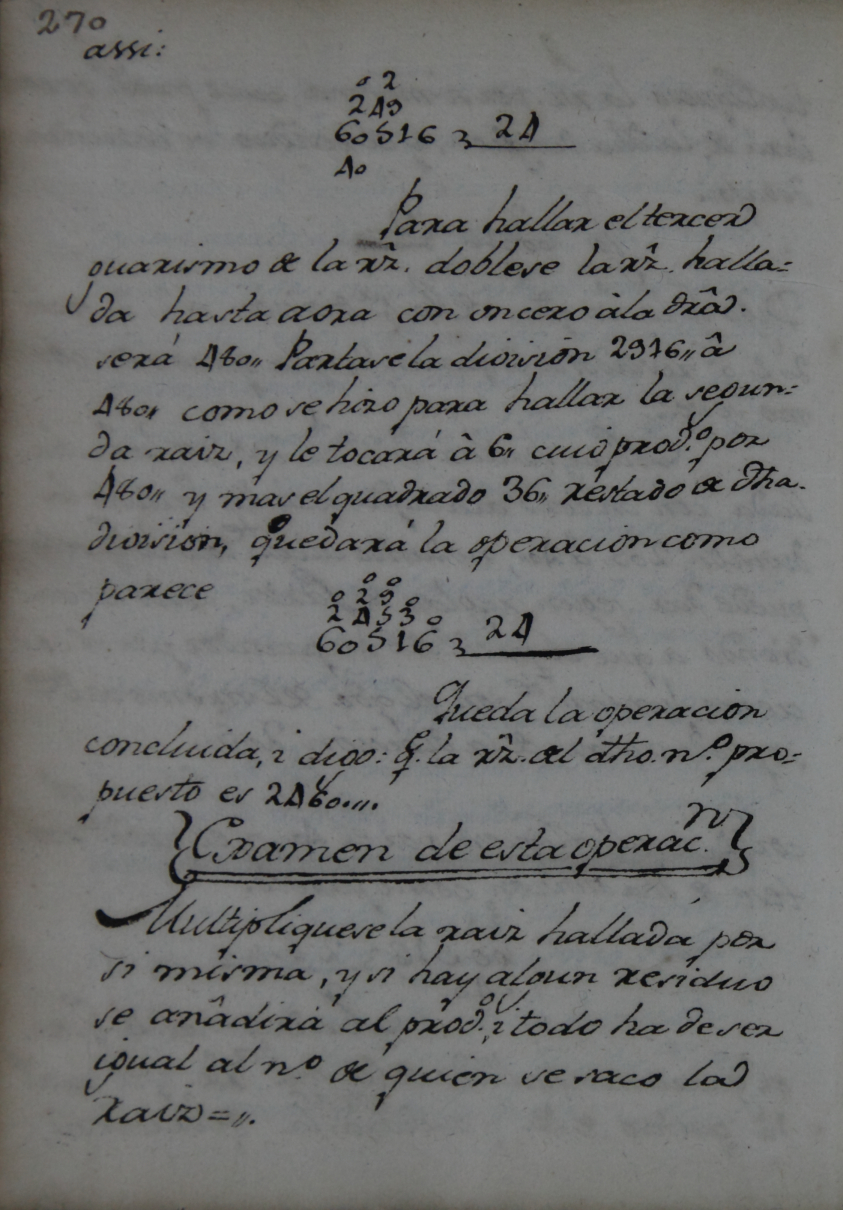 270
assi:
0 2
249
60516 24
40
Para hallar el tercer
guarismo de la rz̃. doblese la rz̃. halla=
da hasta aora con un cero à la drâ.
será 480,, Partase la division 2916,, â
480,, como se hizo para hallar la segun=
da raiz, y le tocará â 6,, cuio prod.º por
480,, y mas el quadrado 36,, restado de dha.
division, quedará la operacion como
parece
0 0
0 2 9 0
2 4 5 3 0
60516 24
Queda la operacion
concluida, i digo: q̃. la rz̃. del dho. n.º pro=
puesto es 246....
Examen de esta operac.n
Multipliquese la raiz hallada por
si misma, y si hay algun residuo
se anâdirá al prod.º, i todo ha de ser
igual al n.º de quien se saco la
Raiz=,,.